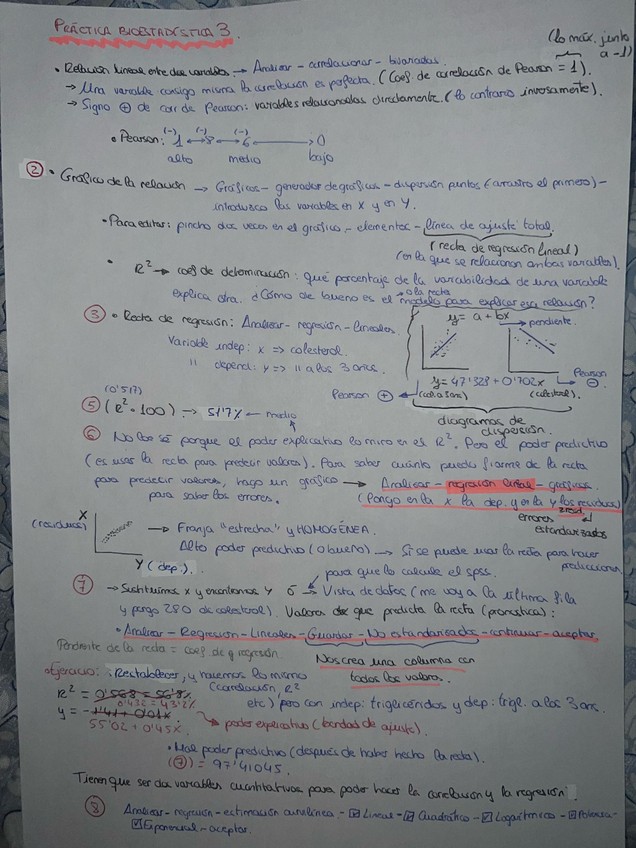 PRÁCTICA BIOESTADÍSTICA 3.
(Lo máx. junto a -1)
• Relación lineal entre dos variables → Analizar - correlacionar - bivariadas.
→ Una variable consigo misma la correlación es perfecta. (Coef. de correlación de Pearson = 1).
→ Signo ⊕ de corr de Pearson: variables relacionadas directamente. (lo contrario inversamente).
• Pearson: (-) 1 ↔ (-) 8 ↔ (-) 6 ↔ 0
alto medio bajo
② • Gráfico de la relación → Gráficos - generador de gráficos - dispersión puntos (arrastro el primero) -
introduzco las variables en X y en Y.
• Para editar: pincho dos veces en el gráfico - elementos - línea de ajuste total.
(recta de regresión lineal)
(en la que se relacionan ambas variables).
• R² → coef de determinación: qué porcentaje de la variabilidad de una variable
explica otra. ¿Cómo de bueno es el modelo para explicar esa relación?
o la recta
③ • Recta de regresión: Analizar - regresión - lineales.
Variable indep: x => colesterol.
" depend: y => " a los 3 años.
y = a + bx
→ pendiente.
y = 47'328 + 0'702x
Pearson ⊖
Pearson ⊕ ← (col a 3 años) (colesterol).
diagramas de
dispersión.
(0'517)
⑤ (R² · 100) → 51'7% ← medio
⑥ No lo sé porque el poder explicativo lo miro en el R². Pero el poder predictivo
(es usar la recta para predecir valores). Para saber cuánto puedo fiarme de la recta
para predecir valores, hago un gráfico → Analizar - regresión lineal - gráficos.
para saber los errores. (Pongo en la x la dep. y en la y los residuos)
zresid
errores estandarizados
X
(residuos)
Y (dep.)
→ Franja "estrecha" y HOMOGÉNEA.
Alto poder predictivo (o bueno) → Si se puede usar la recta para hacer
predicciones
para que lo calcule el spss.
⑦ → Sustituimos x y encontramos y ó → Vista de datos (me voy a la última fila
y pongo 280 de colesterol). Valores de que predicta la recta (pronostica):
• Analizar - Regresión - Lineales - Guardar - No estandarizados - continuar - aceptar.
Pendiente de la recta = coef. de regresión.
Nos crea una columna con
todos los valores.
• Ejercicio: Restablecer, y hacemos lo mismo
(correlación, R²
etc) pero con indep: triglicéridos y dep: trigl. a los 3 años.
R² = 0'568 = 56'8%
0'432 = 43'2%
y = -1'41 + 0'01x
55'02 + 0'45x
→ poder explicativo (bondad de ajuste).
• Mal poder predictivo (después de haber hecho la recta).
(⑦) = 97'41045.
Tienen que ser dos variables cuantitativas para poder hacer la correlación y la regresión.
⑧ Analizar - regresión - estimación curvilínea - ☑ Lineal - ☑ Cuadrático - ☑ Logarítmico - ☑ Potencia -
☑ Exponencial - aceptar.